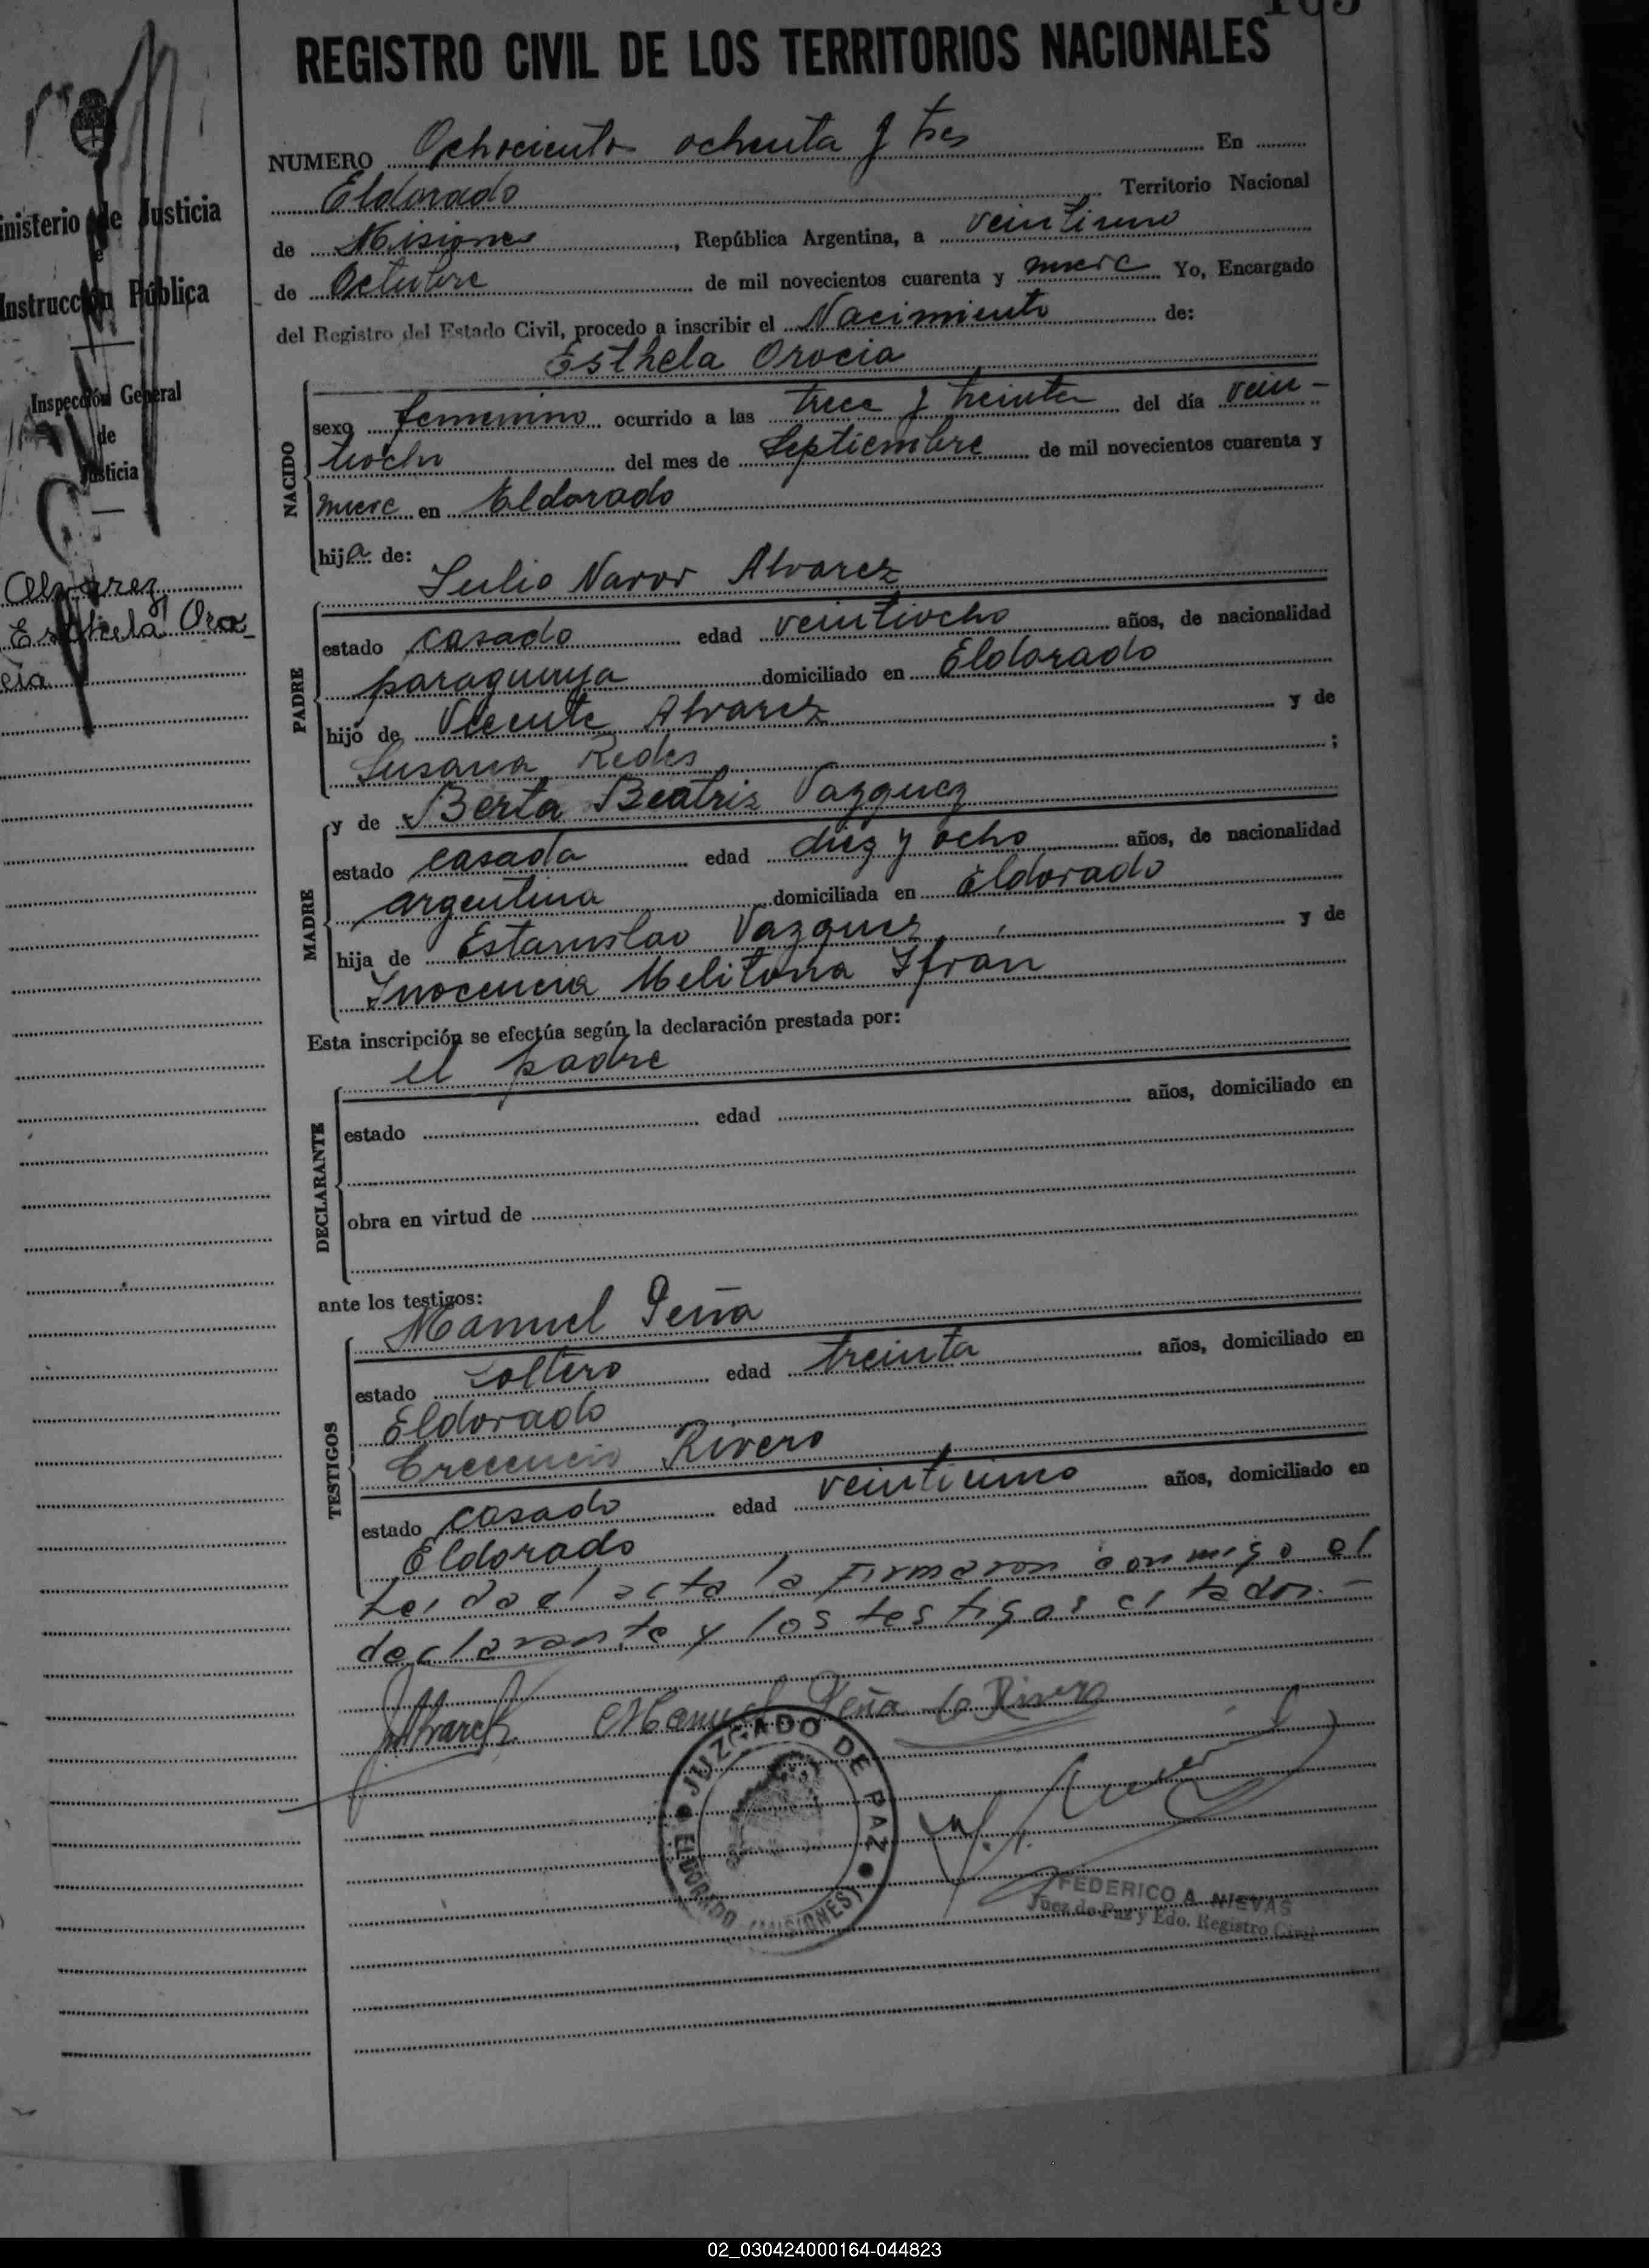 REGISTRO CIVIL DE LOS TERRITORIOS NACIONALES
NUMERO Ochociento ochenta y tres En
Eldorado Territorio Nacional
de Misiones, República Argentina, a veintiuno
de Octubre de mil novecientos cuarenta y nueve Yo, Encargado
del Registro del Estado Civil, procedo a inscribir el Nacimiento de:
Esthela Orocia
NACIDO
sexo femenino ocurrido a las trece y treinta del día vein-
tiocho del mes de Septiembre de mil novecientos cuarenta y
nueve en Eldorado
hija de:
Julio Navor Alvarez
PADRE
estado casado edad veintiocho años, de nacionalidad
paraguaya domiciliado en Eldorado
hijo de Vicente Alvarez y de
Susana Redes;
y de Berta Beatriz Vazquez
MADRE
estado casada edad diez y ocho años, de nacionalidad
argentina domiciliada en Eldorado
hija de Estanislao Vazquez y de
Inocencia Melitona Ifrán
Esta inscripción se efectúa según la declaración prestada por:
el padre
DECLARANTE
estado edad años, domiciliado en
obra en virtud de
ante los testigos:
Manuel Peña
TESTIGOS
estado soltero edad treinta años, domiciliado en
Eldorado
Crecencio Rivero
estado casado edad años, domiciliado en
Eldorado
Leida el acta la firmaron conmigo el
declarante y los testigos citados.-
JNAlvarez Manuel Peña C Rivero
JUZGADO DE PAZ
ELDORADO (MISIONES)
FEDERICO A. NIEVAS
Juez de Paz y Edo. Registro Civil
inisterio de Justicia
e
Instrucción Pública
Inspección General
de
Justicia
Alvarez
Esthela Oro-
cia
02_030424000164-044823